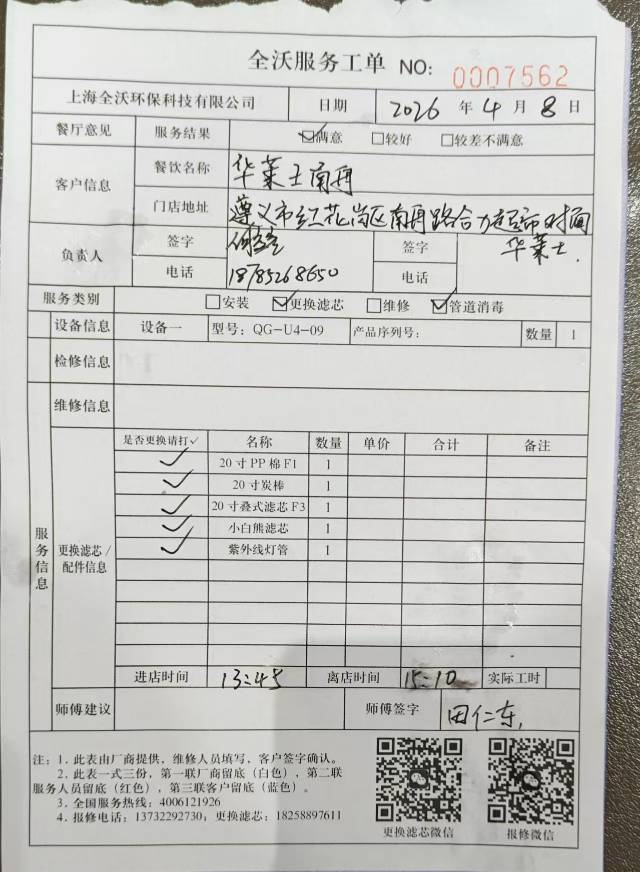 全沃服务工单 NO: 0007562
上海全沃环保科技有限公司 日期 2026 年 4 月 8 日
餐厅意见 服务结果 ☑满意 □较好 □较差不满意
客户信息 餐饮名称 华莱士南再
门店地址 遵义市红花岗区南再路合力超市对面
华莱士.
负责人 签字 签字
电话 18785268650 电话
服务类别 □安装 ☑更换滤芯 □维修 ☑管道消毒
设备信息 设备一 型号: QG-U4-09 产品序列号: 数量 1
检修信息
维修信息
服务信息
更换滤芯/配件信息
是否更换请打✓ 名称 数量 单价 合计 备注
✓ 20寸PP棉F1 1
✓ 20寸炭棒 1
✓ 20寸叠式滤芯F3 1
✓ 小白熊滤芯 1
✓ 紫外线灯管 1
进店时间 13:45 离店时间 15:10 实际工时
师傅建议 师傅签字 田仁东,
注: 1. 此表由厂商提供, 维修人员填写, 客户签字确认。
2. 此表一式三份, 第一联厂商留底(白色), 第二联
服务人员留底(红色), 第三联客户留底(蓝色)。
3. 全国服务热线: 4006121926
4. 报修电话: 13732292730; 更换滤芯: 18258897611
更换滤芯微信 报修微信